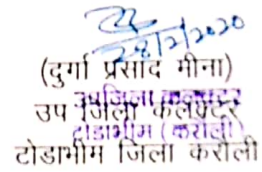 28/2/2020
(दुर्गा प्रसाद मीना)
उप जिला कलेक्टर
उपजिला कलक्टर
टोडाभीम (करौली)
टोडाभीम जिला करौली